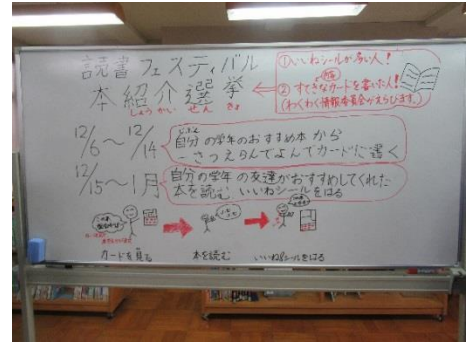 読書フェスティバル
本紹介選挙
しょうかい せん きょ
①いいねシールが多い人!
②すてきなカードを書いた人!
(わくわく情報委員会がえらびます。)
12/6~12/14
自分の学年のおすすめ本から
一さつえらんでよんでカードに書く
12/15~1月
自分の学年の友達がおすすめしてくれた
本を読む いいねシールをはる
カードを見る
本を読む
いいねシールをはる